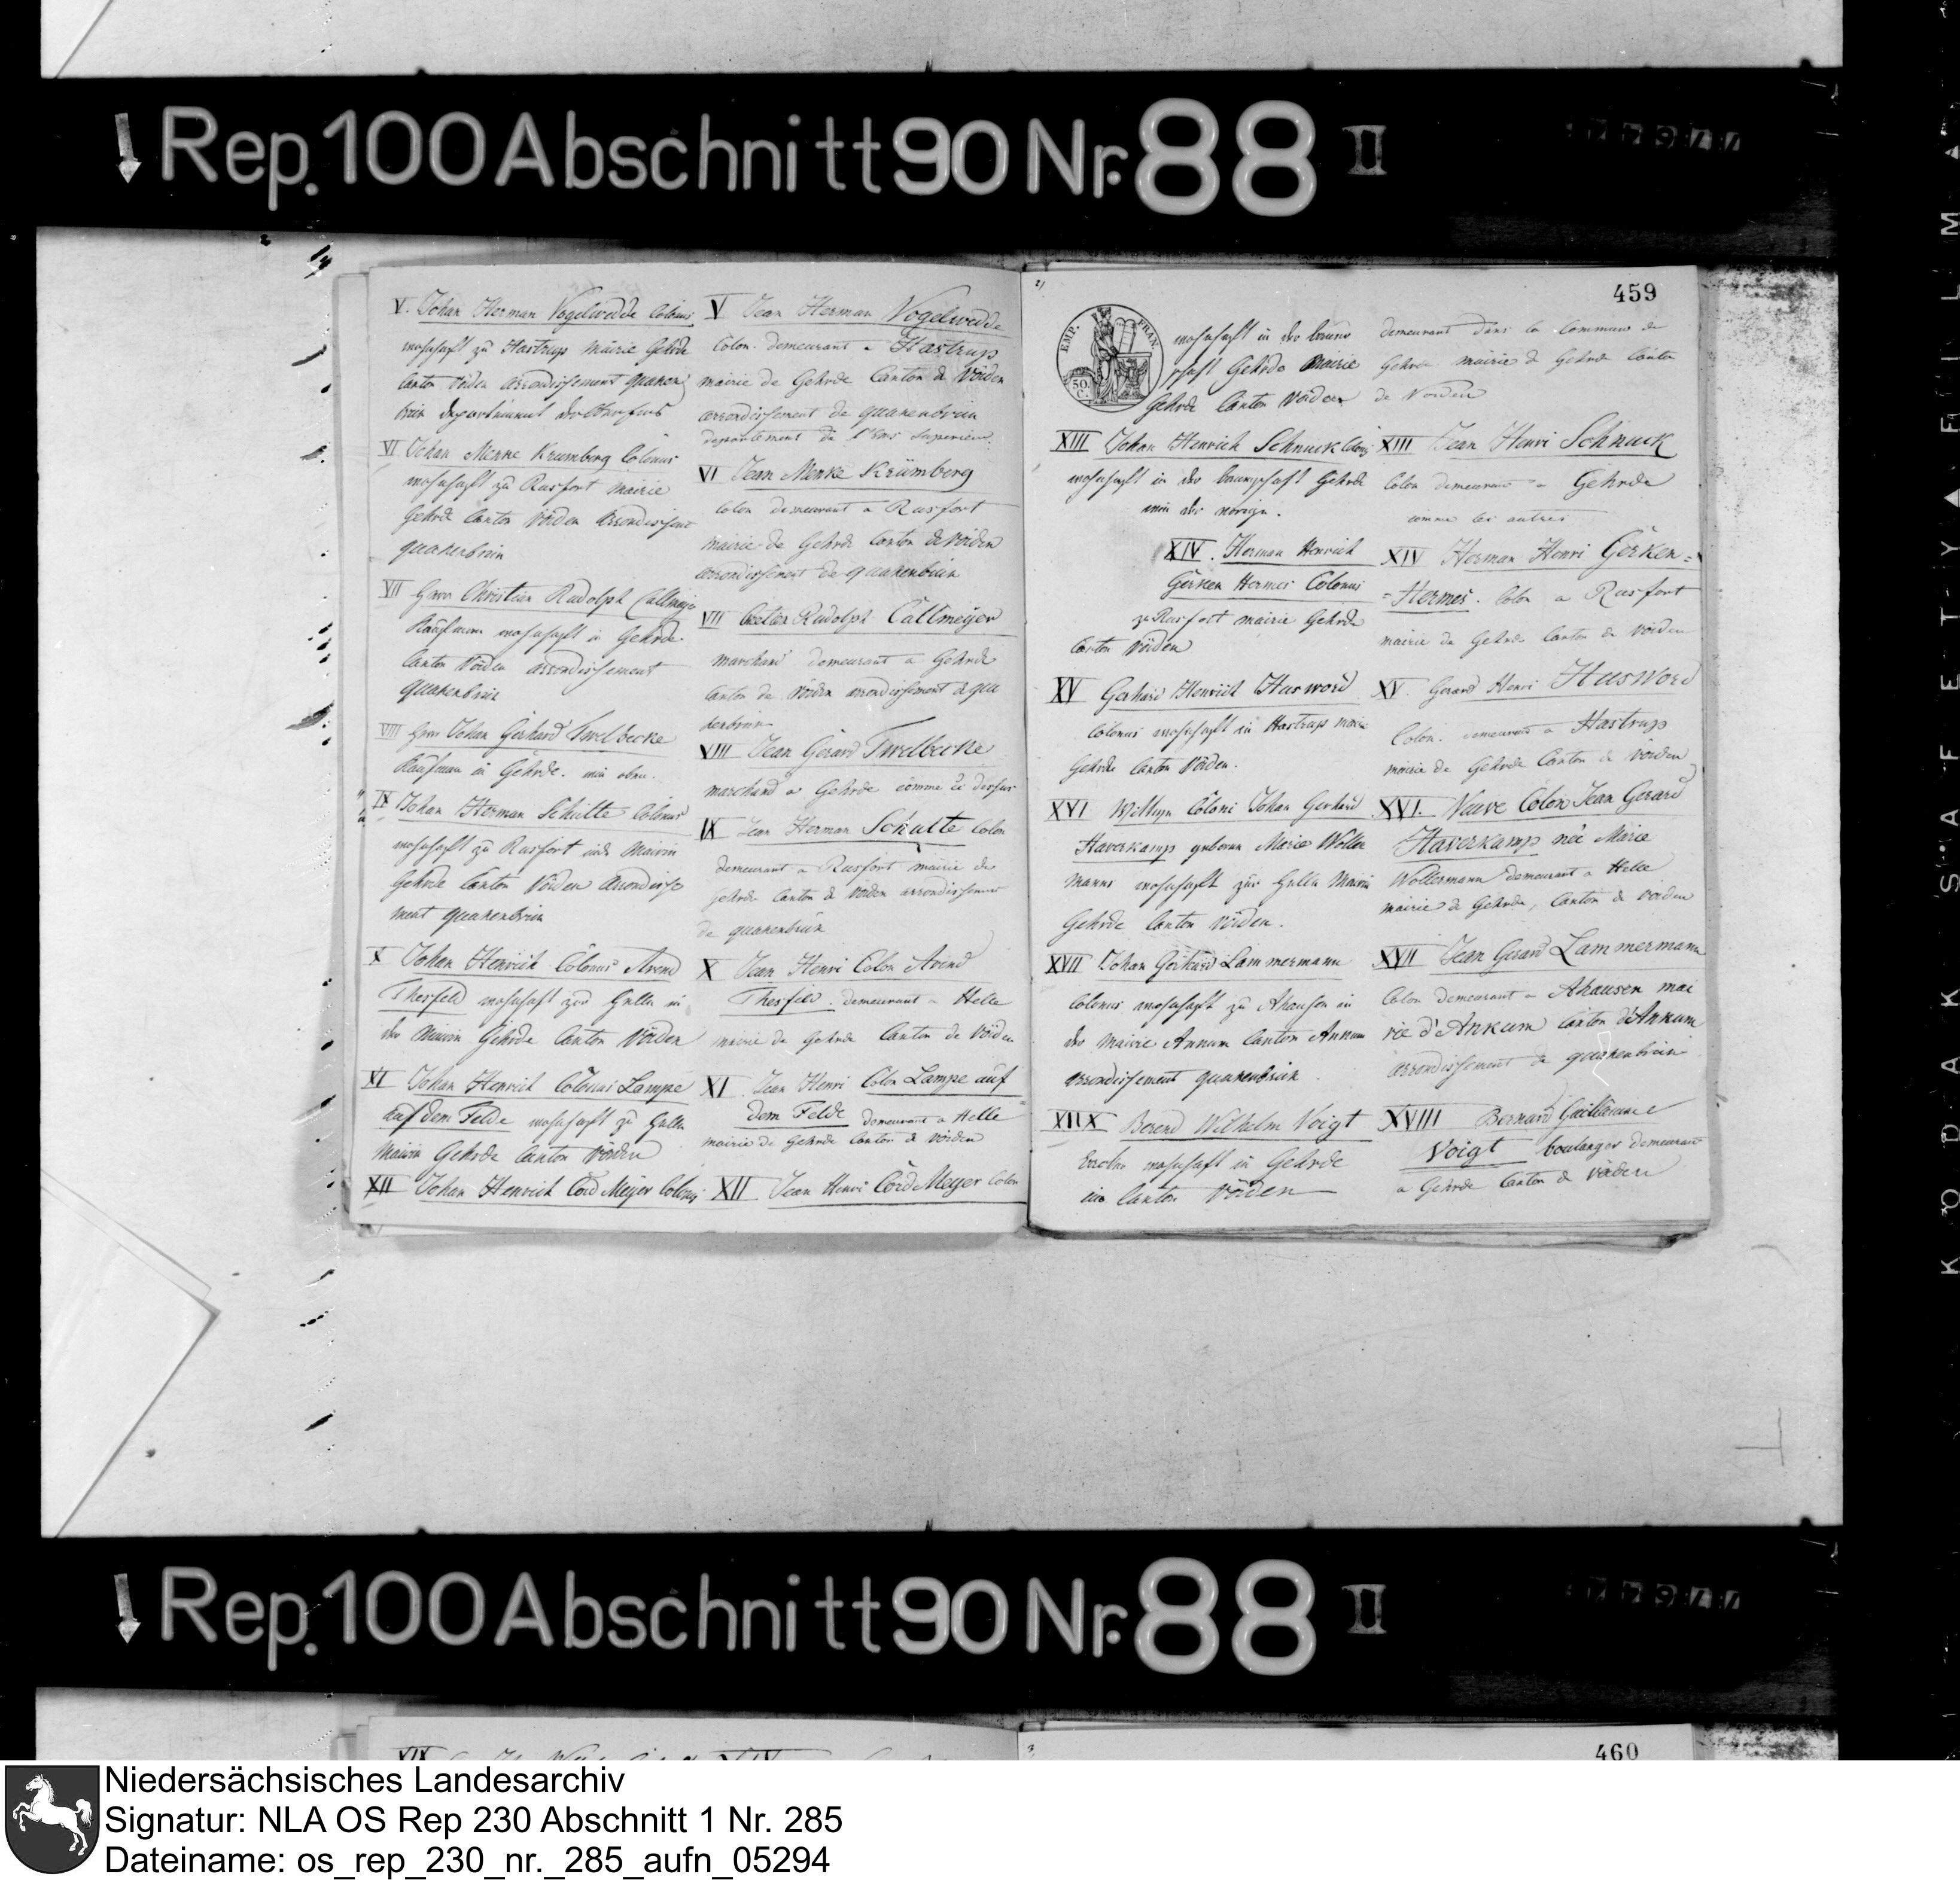 Rep. 100 Abschnitt 90 Nr. 88 II
V. Johan Herman Vogelwedde Colonus
wohnhaft zu Hastrup Mairie Gehrde
Canton Vörden arrondissement quaken
brück departement der Oberems
VI Johan Menke Krumberg Colonus
wohnhaft zu Rusfort mairie
Gehrde Canton Vörden arrondissement
quakenbrück
VII Herr Christian Rudolph Callmeyer
Kaufmann wohnhaft in Gehrde
Canton Vörden arrondissement
quakenbrück
VIII Herr Johan Gerhard Twelbecke
Kaufman in Gehrde. wie oben.
IX Johan Herman Schulte Colonus
wohnhaft zu Rusfort in der Mairie
Gehrde Canton Vörden arrondisse
ment quakenbrück
X Johan Henrich Colonus Arend
Thesfeld wohnhaft zur Helle in
der Mairie Gehrde Canton Vörden
XI Johan Henrich Colonus Lampe
auf dem Felde wohnhaft zu Helle
Mairie Gehrde Canton Vörden
XII Johan Henrich Cord Meyer Colonus
V Jean Herman Vogelwedde
Colon. demeurant a Hastrup
mairie de Gehrde Canton de Vörden
arrondissement de quakenbrück
departement de l'Ems Superieur.
VI Jean Menke Krümberg
Colon demeurant a Rusfort
mairie de Gehrde Canton de Vörden
arrondissement de quakenbrück
VII Rudolph Callmeyer
marchand demeurant a Gehrde
Canton de Vörden arrondissement de qua
kenbrück
VIII Jean Gerard Twelbecke
marchand a Gehrde comme ci dessus
IX Jean Herman Schulte Colon
demeurant a Rusfort mairie de
Gehrde Canton de Vörden arrondissement
de quakenbrück
X Jean Henri Colon Arend
Thesfeld. demeurant a Helle
mairie de Gehrde Canton de Vörden
XI Jean Henri Colon Lampe auf
dem Felde demeurant a Helle
mairie de Gehrde Canton de Vörden
XII Jean Henri Cord Meyer Colon
459
EMP. FRAN.
50. C.
wohnhaft in der bauer
schaft Gehrde Mairie
Gehrde Canton Vörden
XIII Johan Henrich Schnuck Colonus
wohnhaft in der bauerschaft Gehrde
wie die vorigen.
XIV. Herman Henrich
Gerken Hermes Colonus
zu Rusfort mairie Gehrde
Canton Vörden
XV Gerhard Henrich Husword
Colonus wohnhaft in Hastrup mairie
Gehrde Canton Vörden.
XVI Wittwe Coloni Johan Gerhard
Haverkamp geboren Marie Wolter
manns wohnhaft zur Helle Mairie
Gehrde Canton Vörden.
XVII Johan Gerhard Lammermann
Colonus wohnhaft zu Ahausen in
der Mairie Ankum Canton Ankum
arrondissement quakenbrück.
XIIX Berend Wilhelm Voigt
becker wohnhaft in Gehrde
im Canton Vörden
demeurant dans la Commune de
Gehrde mairie de Gehrde Canton
de Vörden
XIII Jean Henri Schnuck
Colon demeurant a Gehrde
comme les autres
XIV Herman Henri Gerken=
=Hermes. Colon a Rusfort
mairie de Gehrde Canton de Vörden
XV. Gerard Henri Husword
Colon. demeurant a Hastrup
mairie de Gehrde Canton de Vörden
XVI. Veuve Colon Jean Gerard
Haverkamp née Marie
Woltermann demeurant a Helle
mairie de Gehrde, Canton de Vörden
XVII Jean Gerard Lammermann
Colon demeurant a Ahausen mai
rie d'Ankum Canton d'Ankum
arrondissement de quakenbrück
XVIII Bernard Guillaume
Voigt boulanger demeurant
a Gehrde Canton de Vörden
KODAK SAFETY FILM
Rep. 100 Abschnitt 90 Nr. 88 II
XIX
460
Niedersächsisches Landesarchiv
Signatur: NLA OS Rep 230 Abschnitt 1 Nr. 285
Dateiname: os_rep_230_nr._285_aufn_05294